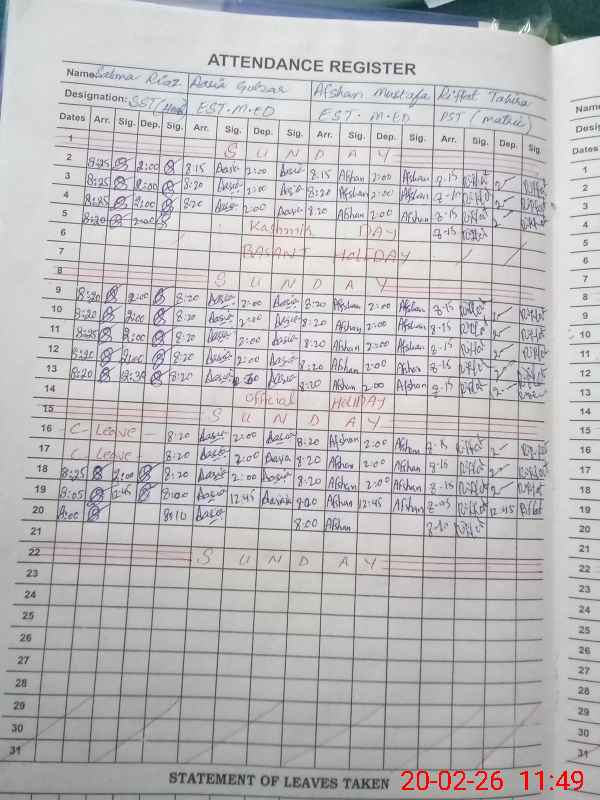 ATTENDANCE REGISTER
Name Salma Riaz Asia Gulzar Afshan Mustafa Riffat Tahira
Designation: SST (Hm) EST. M.ED EST. M.ED PST (matric)
Dates Arr. Sig. Dep. Sig. Arr. Sig. Dep. Sig. Arr. Sig. Dep. Sig. Arr. Sig. Dep. Sig.
1 S U N D A Y
2 8:25 2:00 8:15 Asia 2:00 Asia 8:15 Afshan 2:00 Afshan 8-15 Riffat 2 Riffat
3 8:25 2:00 8:20 Asia 2:00 Asia 8:20 Afshan 2:00 Afshan 8-10 Riffat 2 Riffat
4 8:25 2:00 8:20 Asia 2:00 Asia 8:20 Afshan 2:00 Afshan 8-15 Riffat 2 Riffat
5 8:20 2:00 Kashmir DAY 8-15 Riffat
6
7 BASANT HOLIDAY
8 S U N D A Y
9 8:20 2:00 8:20 Asia 2:00 Asia 8:20 Afshan 2:00 Afshan 8-15 Riffat 2 Riffat
10 8:20 2:00 8:20 Asia 2:00 Asia 8:20 Afshan 2:00 Afshan 8-15 Riffat 2 Riffat
11 8:25 2:00 8:20 Asia 2:00 Asia 8:20 Afshan 2:00 Afshan 8-15 Riffat 2 Riffat
12 8:20 2:00 8:20 Asia 2:00 Asia 8:20 Afshan 2:00 Afshan 8-15 Riffat 2 Riffat
13 8:20 12:30 8:20 Asia Asia 8:20 Afshan 2:00 Afshan 8-15 Riffat 2 Riffat
14 official HOLIDAY
15 S U N D A Y
16 C- Leave - 8:20 Asia 2:00 Asia 8:20 Afshan 2:00 Afshan 8-15 Riffat 2 Riffat
17 C- Leave - 8:20 Asia 2:00 Asia 8:20 Afshan 2:00 Afshan 8-15 Riffat 2 Riffat
18 8:25 2:00 8:20 Asia 2:00 Asia 8:20 Afshan 2:00 Afshan 8-15 Riffat 2 Riffat
19 8:05 12:45 8:00 Asia 12:45 Asia 8:00 Afshan 12:45 Afshan 8-05 Riffat 12:45 Riffat
20 8:00 8:10 Asia 8:00 Afshan 8-10 Riffat
21
22 S U N D A Y
23
24
25
26
27
28
29
30
31
STATEMENT OF LEAVES TAKEN
20-02-26 11:49
Name
Desig
Dates
1
2
3
4
5
6
7
8
9
10
11